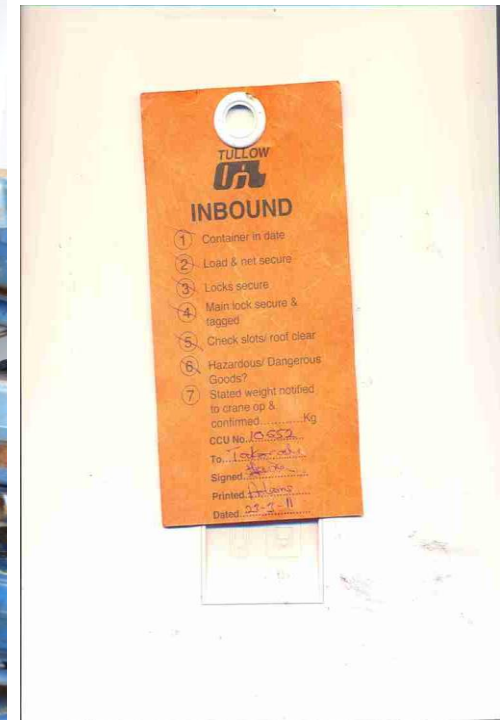 TULLOW
OIL
INBOUND
1 Container in date
2 Load & net secure
3 Locks secure
4 Main lock secure &
tagged
5 Check slots/ roof clear
6 Hazardous/ Dangerous
Goods?
7 Stated weight notified
to crane op &
confirmed............Kg
CCU No. 10652
To. Takoradi
Signed.
Printed.
Dated. 23-7-11